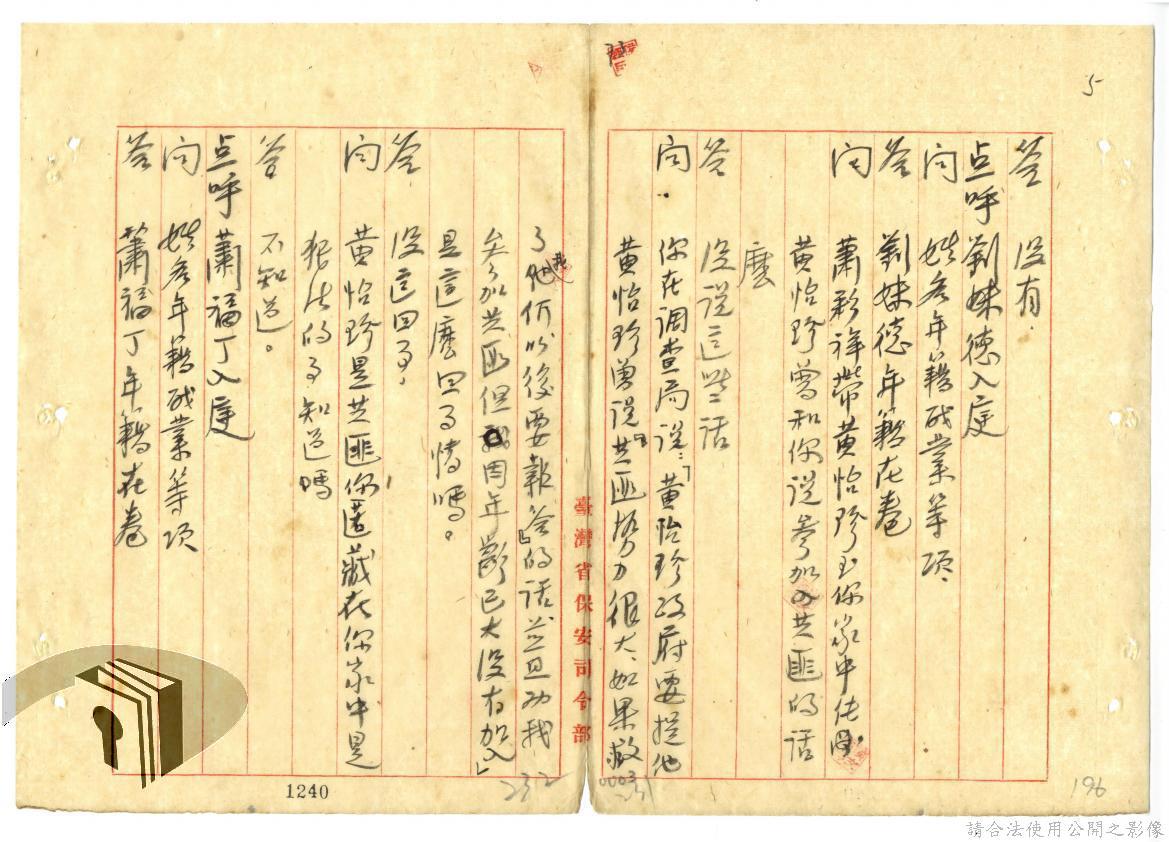 5
答　没有
点呼劉妹德入庭
问　姓名年籍職業等項
答　劉妹德年籍在卷
问　蕭彩祥帶黄怡珍到你家中住
黄怡珍曾和你説參加共匪的話
麽
答　没説這些話
问　你在調查局説：「黄怡珍政府要捉他
黄怡珍曾説共匪势力很大、如果救
了他们以後要報答的话並且劝我
參加共匪但我因年龄已大没有加入」
是這麽回事情嗎。
答　没這回事，
问　黄怡珍是共匪你匿藏在你家中是
犯法的事知道嗎
答　不知道。
点呼蕭福丁入庭
问　姓名年籍職業等項
答　蕭福丁年籍在卷
臺灣省保安司令部
1240
232
196
請合法使用公開之影像